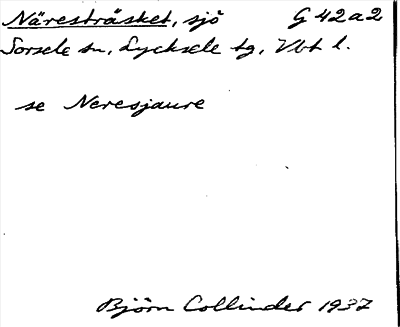 Näresträsket, sjö G 42a2
Sorsele sn, Lycksele tg, Vbt l.
se Neresjaure
Björn Collinder 1937